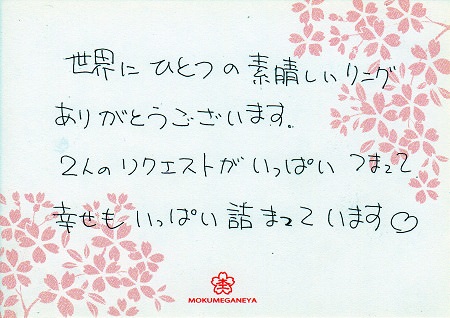 世界に ひとつ の 素晴しいリング
ありがとうございます。
2人の リクエストが いっぱい つまって
幸せも いっぱい 詰まっています♡
杢
MOKUMEGANEYA